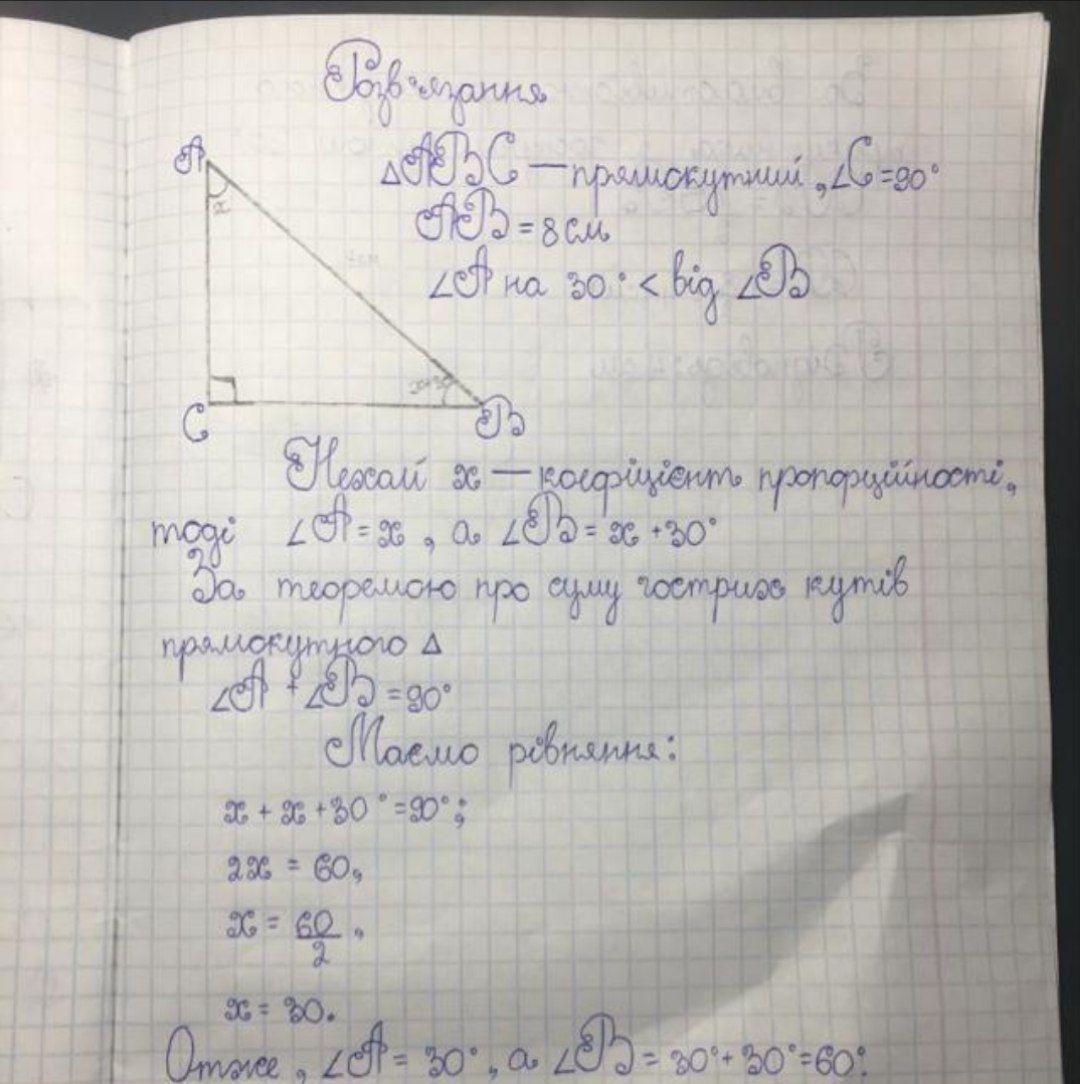 Розв'язання
A
△ABC — прямокутний, ∠C = 90°
x
AB = 8 см
∠A на 30° < від ∠B
x+30
C
B
Нехай x — коефіцієнт пропорційності,
тоді ∠A = x, а ∠B = x + 30°
За теоремою про суму гострих кутів
прямокутного △
∠A + ∠B = 90°
Маємо рівняння:
x + x + 30° = 90°;
2x = 60,
x = 60/2,
x = 30.
Отже, ∠A = 30°, а ∠B = 30° + 30° = 60°.